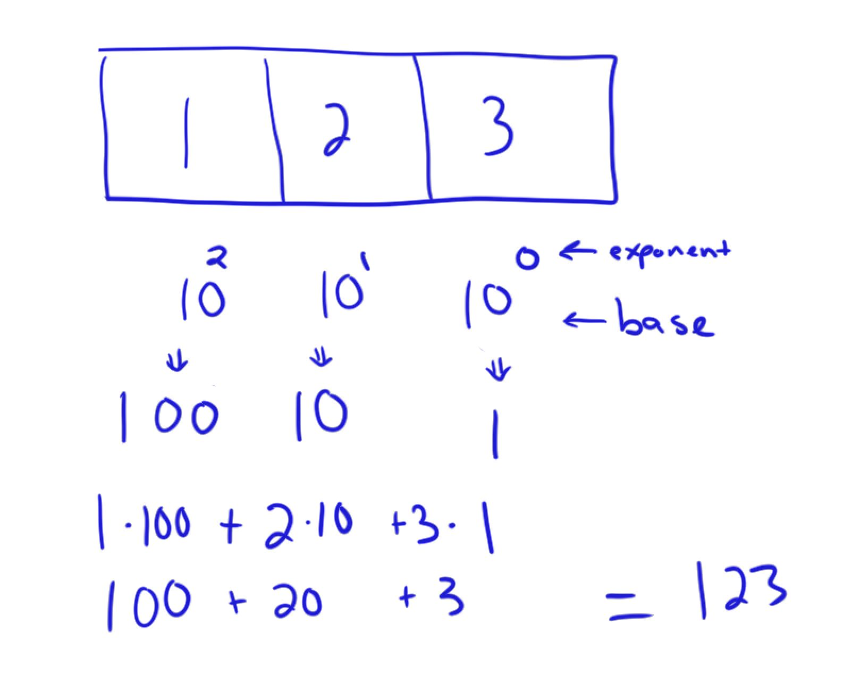 1 2 3
10² 10¹ 10⁰ ← exponent
← base
↓ ↓ ↓
100 10 1
1·100 + 2·10 +3·1
100 + 20 + 3 = 123